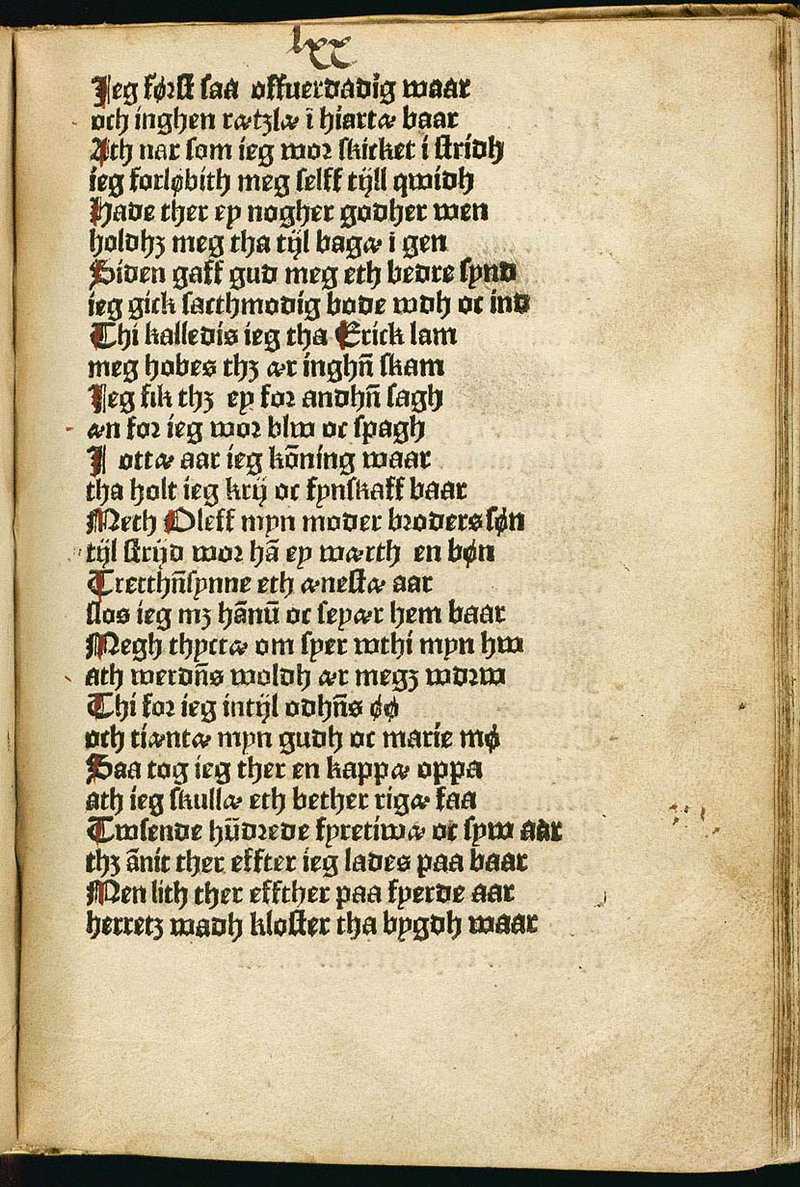 lxx
Jeg først saa offuerdadig waar
och inghen rætzlæ ī hiartæ baar
Ath nar som ieg wor skicket i stridh
ieg forløbith meg selff tijll qwidh
Hade ther ey nogher godher wen
holdhꝫ meg tha tijl bagæ i gen
Siden gaff gud meg eth bedre synd
ieg gick sacthmodig bode wdh oc ind
Thi kalledis ieg tha Erick lam
meg hobes thꝫ ær inghn̄ skam
Jeg fik thꝫ ey for andhn̄ sagh
æn for ieg wor blw oc spagh
J ottæ aar ieg kōning waar
tha holt ieg krij oc fynskaff baar
Meth Oleff myn moder broders søn
tijl strijd wor hā ey wærth en bøn
Tretthn̄synne eth ænestæ aar
slos ieg mꝫ hānū oc seyær hem baar
Megh thyctæ om syer wthi myn hw
ath werdn̄s woldh ær megꝫ wdrw
Thi for ieg intijl odhn̄s øø
och tiæntæ myn gudh oc marie mø
Saa tog ieg ther en kappæ oppa
ath ieg skullæ eth bether rigæ faa
Twsende hūdrede fyretiwæ oc syw aar
thꝫ ānit ther effter ieg lades paa baar
Men lith ther effther paa fyerde aar
herretꝫ wadh kloster tha bygdh waar